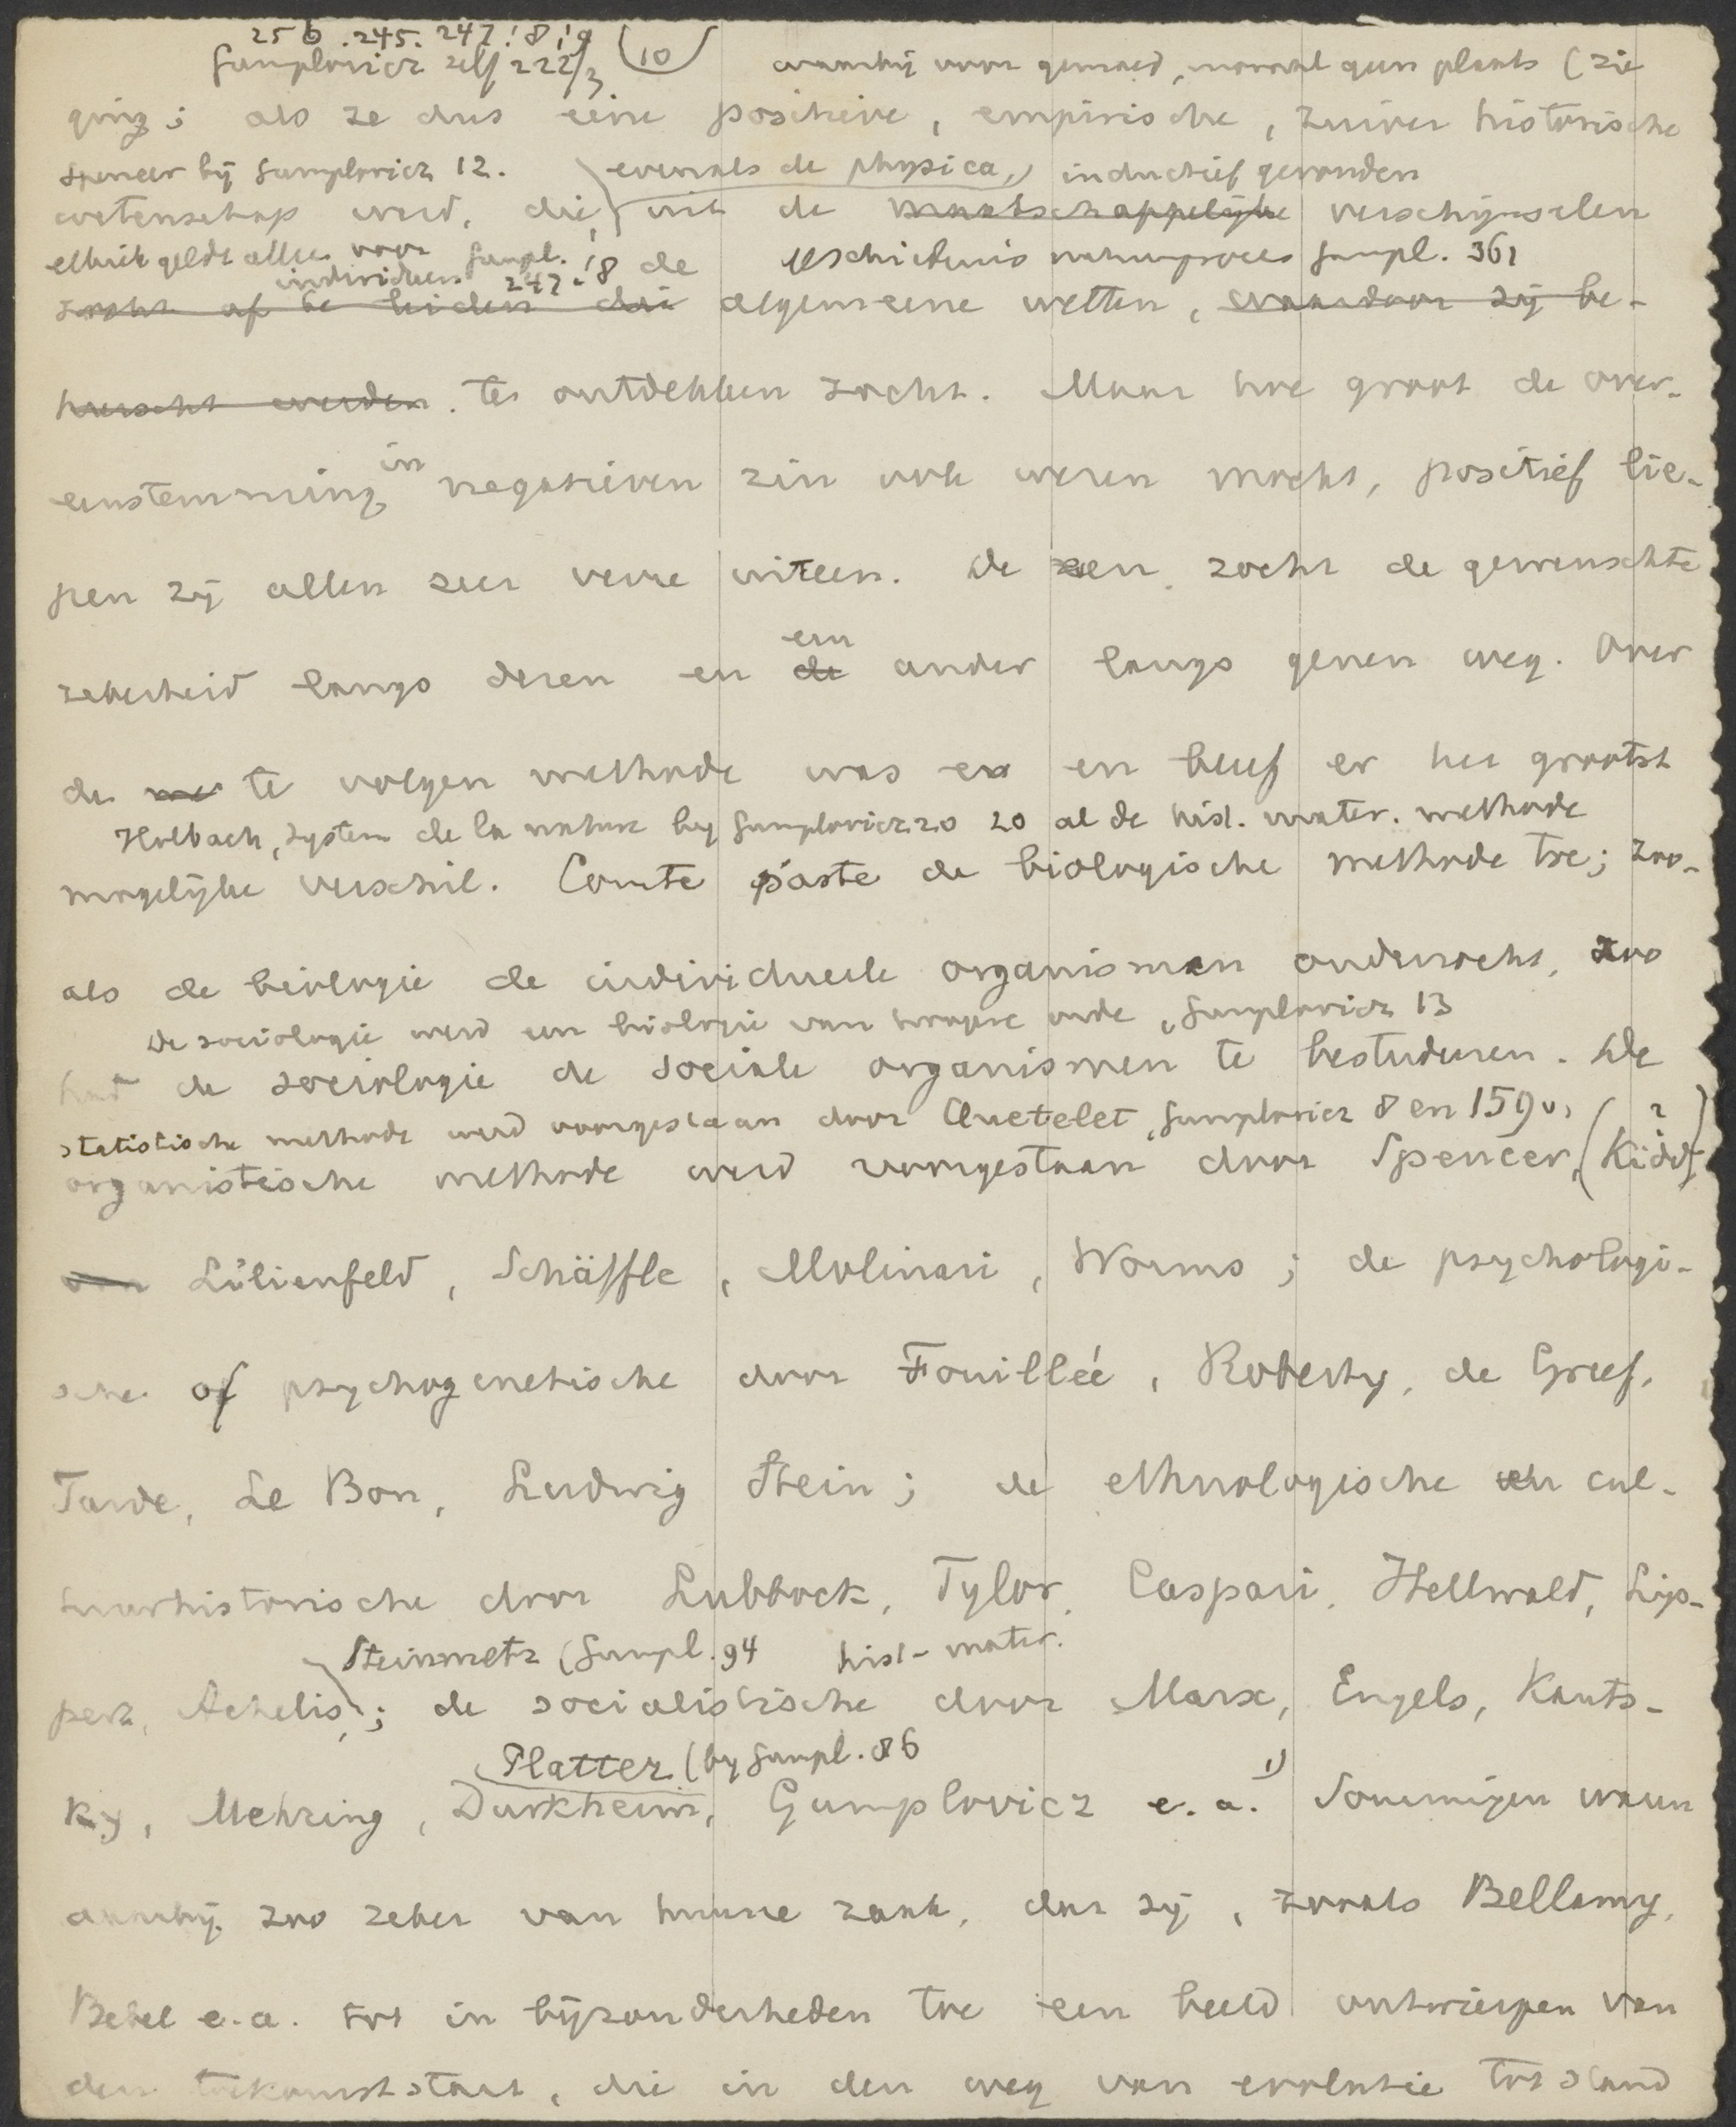 256. 245. 247! 8! 9
Gumplovicz zelf 222/3 (10) waarbij voor gemoed, moraal geen plaats (zie
ging; als ze dus eene positieve, empirische, zuiver historische
Spencer bij Gumplovicz 12. evenals de physica, inductief gevonden
wetenschap werd, die, uit de maatschappelijke verschijnselen
ethiek geldt alleen voor individueen Gumpl. 247.!8 de geschiedenis natuurproces Gumpl. 361
zocht af te leiden die algemeene wetten, waardoor zij be-
heerscht werden. te ontdekken zocht. Maar hoe groot de over-
eenstemming in negatieven zin ook wezen mocht, positief lie-
pen zij allen zeer verre uiteen. De een zocht de gewenschte
een
zekerheid langs dezen en de ander langs genen weg. Over
de te volgen methode was er en bleef er het grootst
Holbach, System de la nature by Gumplovicz 20 20 al de hist. mater. methode
mogelijke verschil. Comte paste de biologische methode toe; zoo-
als de biologie de individueele organismen onderzocht, zoo
De sociologie werd een biologie van hoogere orde, Gumplovicz 13
had de sociologie de sociale organismen te bestudeeren. De
statistische methode werd voorgestaan door Quetelet, Gumplovicz 8 en 159v, ?
organistische methode werd voorgestaan door Spencer, (Kidd),
von Lilienfeld, Schäffle, Molinari, Worms; de psychologi-
sche of psychogenetische door Fouillée, Roberty, de Greef,
Tarde, Le Bon, Ludwig Stein; de ethnologische en cul-
tuurhistorische door Lubbock, Tylor, Caspari, Hellwald, Lip-
Steinmetz (Gumpl. 94 hist-mater.
pert, Achelis; de socialistische door Marx, Engels, Kauts-
Platter (by Gumpl. 86
ky, Mehring, Durkheim, Gumplovicz e.a. 1) Sommigen waren
daarbij zoo zeker van hunne zaak, dat zij, zooals Bellamy,
Bebel e.a. tot in bijzonderheden toe een beeld ontwierpen van
den toekomststaat, die in den weg van evolutie tot stand